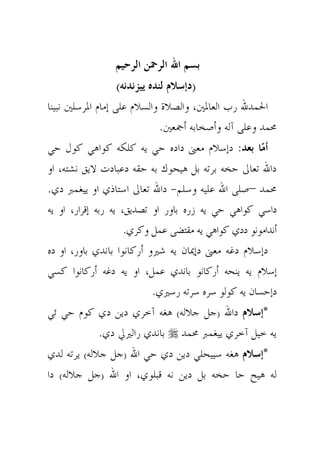 بسم الله الرحمن الرحيم
(دإسلام لنډه پيژندنه)
الحمدلله رب العالمين، والصلاة والسلام على إمام المرسلين نبينا
محمد وعلى آله وأصحابه أجمعين.
أمّا بعد: دإسلام معنىٰ داده چي په کلکه کواهي کول چي
دالله تعالىٰ څخه برته بل هيڅوك په حقه دعبادت لايق نشته، او
محمد -صلى الله عليه وسلم- دالله تعالىٰ استاذي او پيغمبر دي.
داسي کواهي چي په زړه باور او تصديق، په ربه إقرار، او په
أندامونو ددي کواهي په مقتضى عمل وکړي.
دإسلام دغه معنىٰ دإيمان په شپږو أرکانوا باندي باور، او ده
إسلام په پنځه أرکانو باندي عمل، او په دغه أرکانوا کسي
دإحسان په کولو سره سرته رسيږي.
*إسلام دالله (جل جلاله) هغه آخري دين دي کوم چي ئي
په خپل آخري پيغمبر محمد ﷺ باندي راليږلي دي.
*إسلام هغه سپيڅلي دين دي چي الله (جل جلاله) پرته لدي
له هيڅ چا څخه بل دين نه قبلوي، او الله (جل جلاله) دا